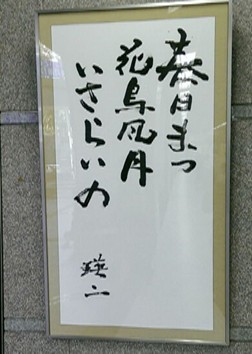 春日まつ
花鳥風月
いさらいの
瑛二